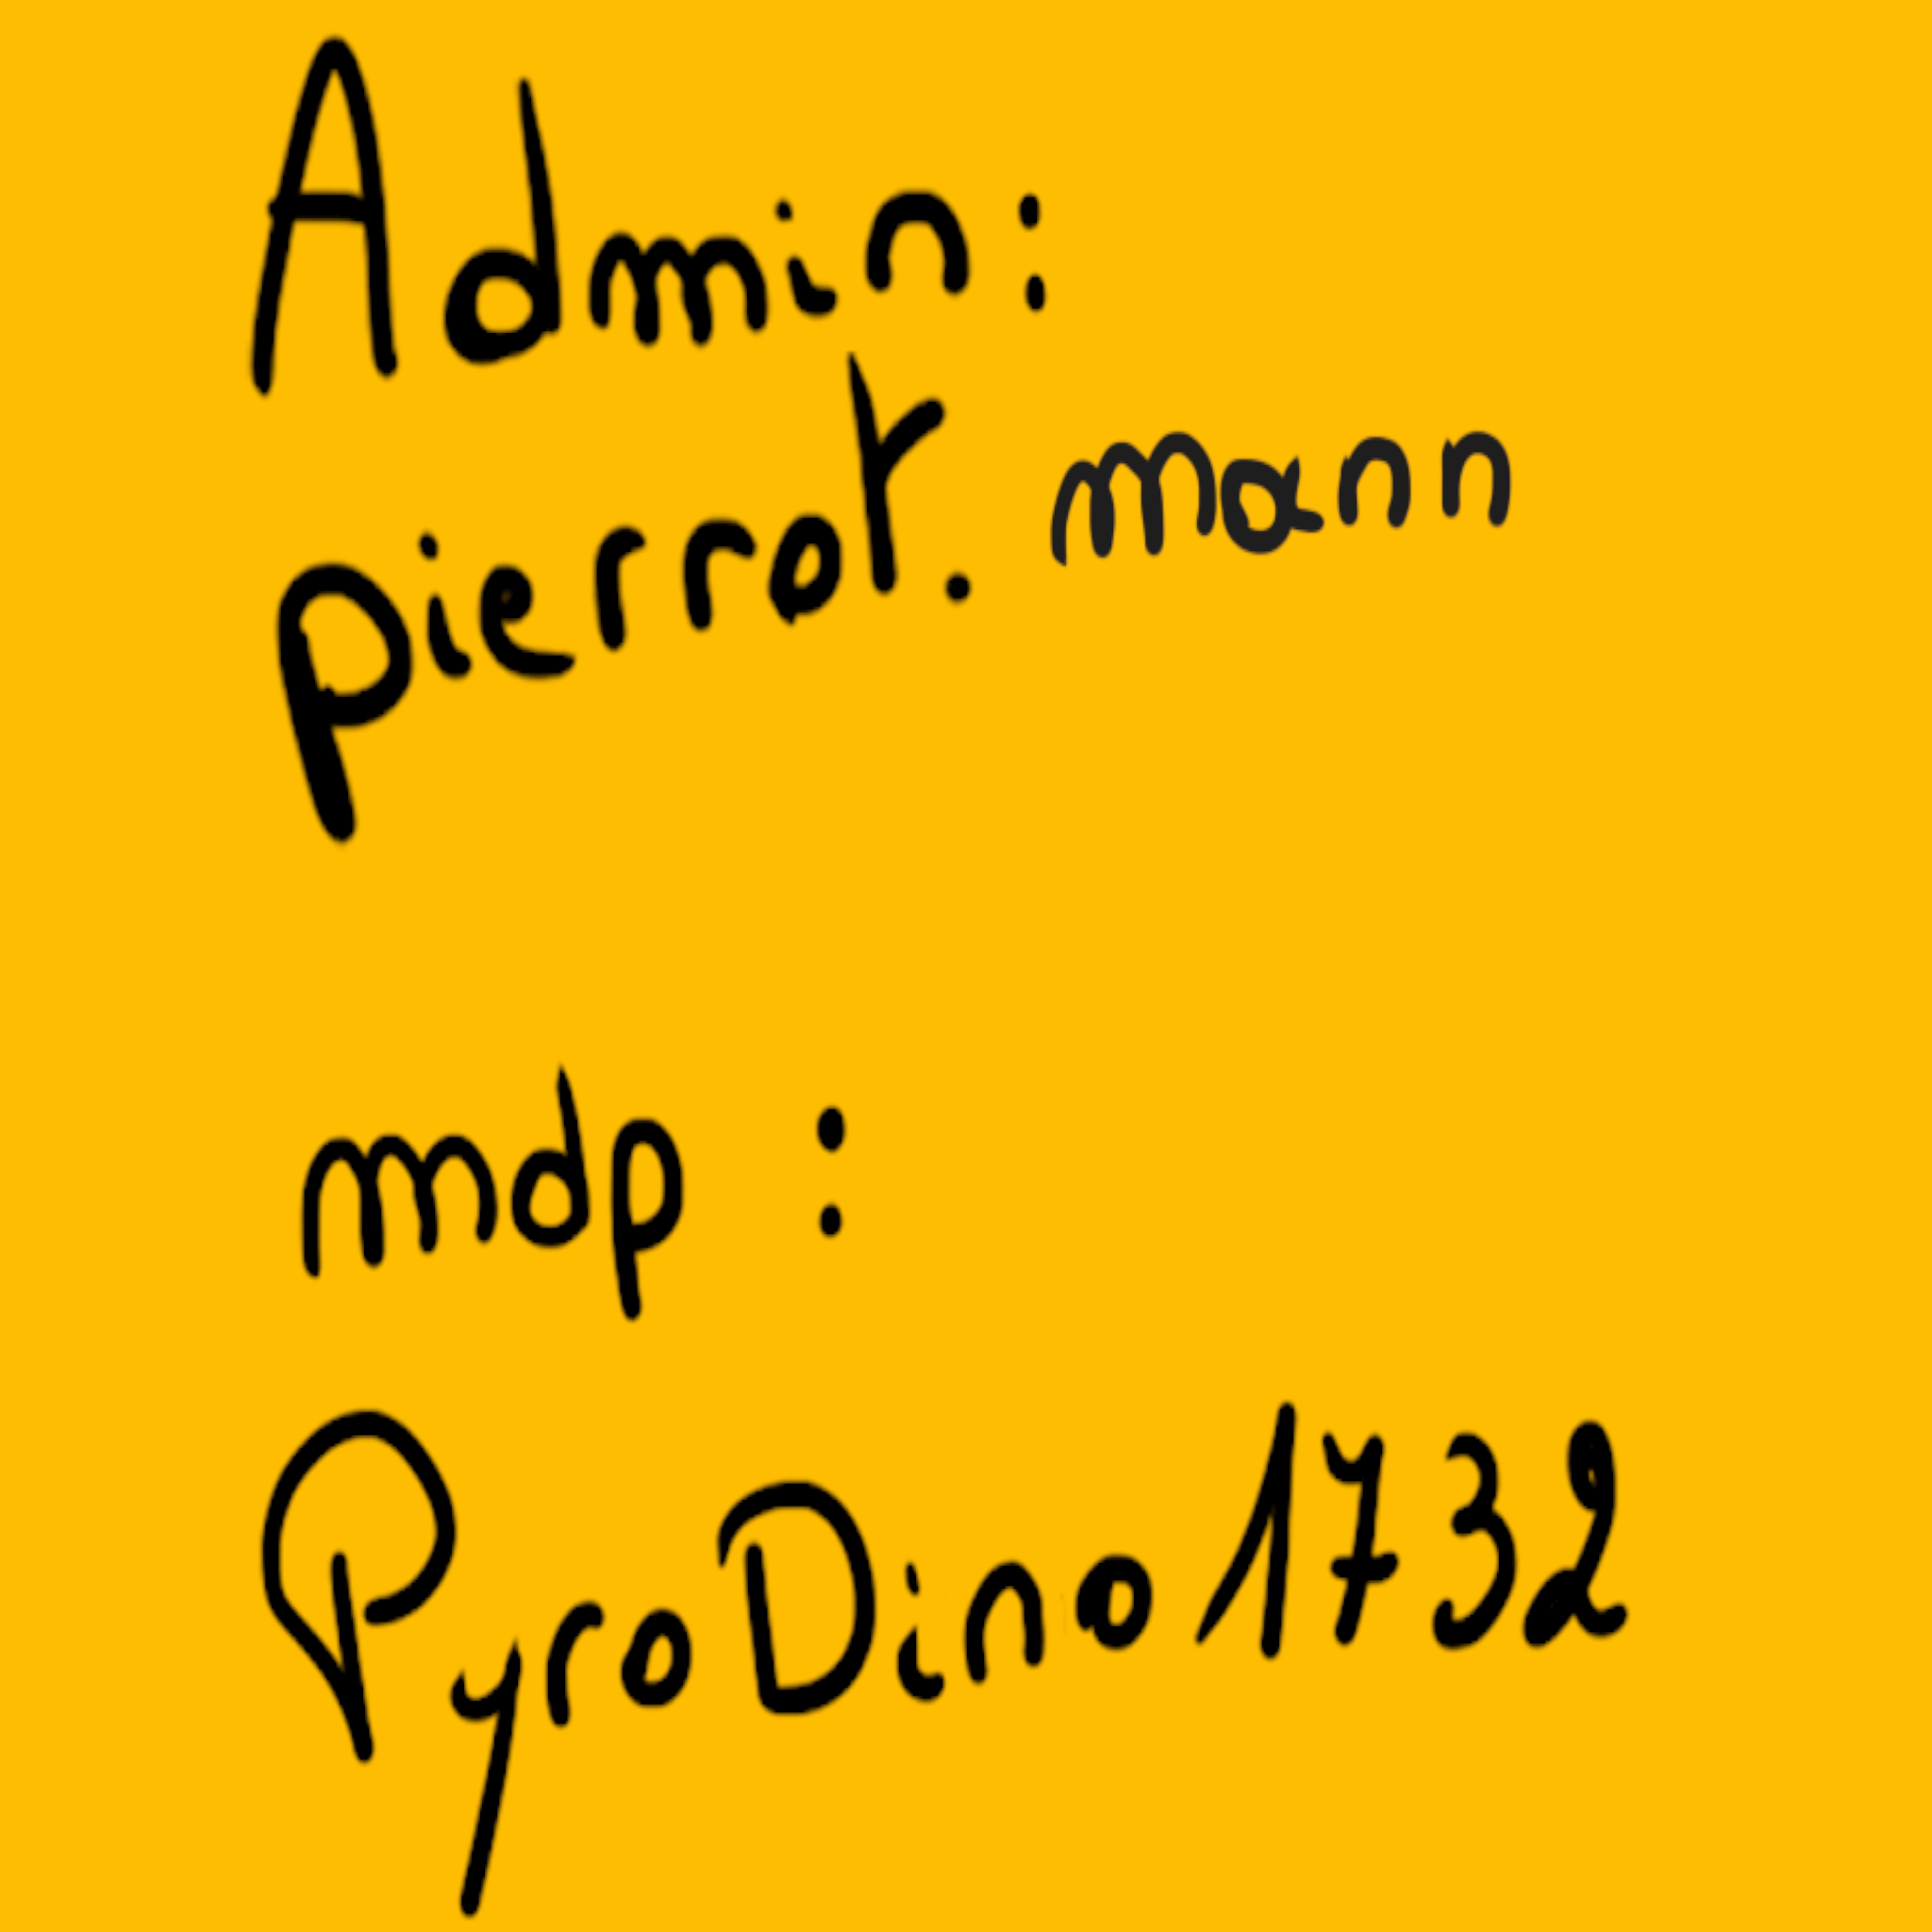 Admin:
pierrot.mann
mdp :
PyroDino1732